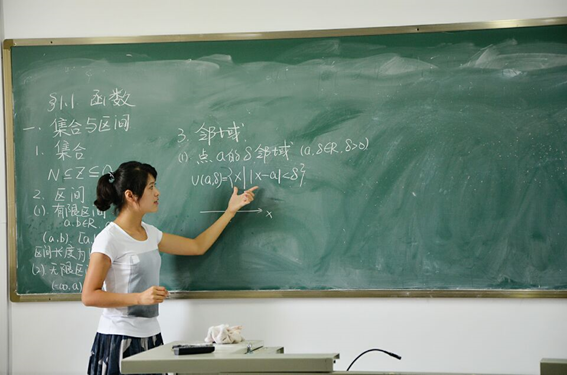 §1.1 函数
一、集合与区间
1. 集合
N⊆Z⊆Q
2. 区间
(1) 有限区间
a.b∈R
(a.b) [a.
区间长度为
(2) 无限区
(-∞,a)
3. 邻域
(1) 点a的δ邻域 (a,δ∈R, δ>0)
U(a,δ)={x||x-a|<δ}
x